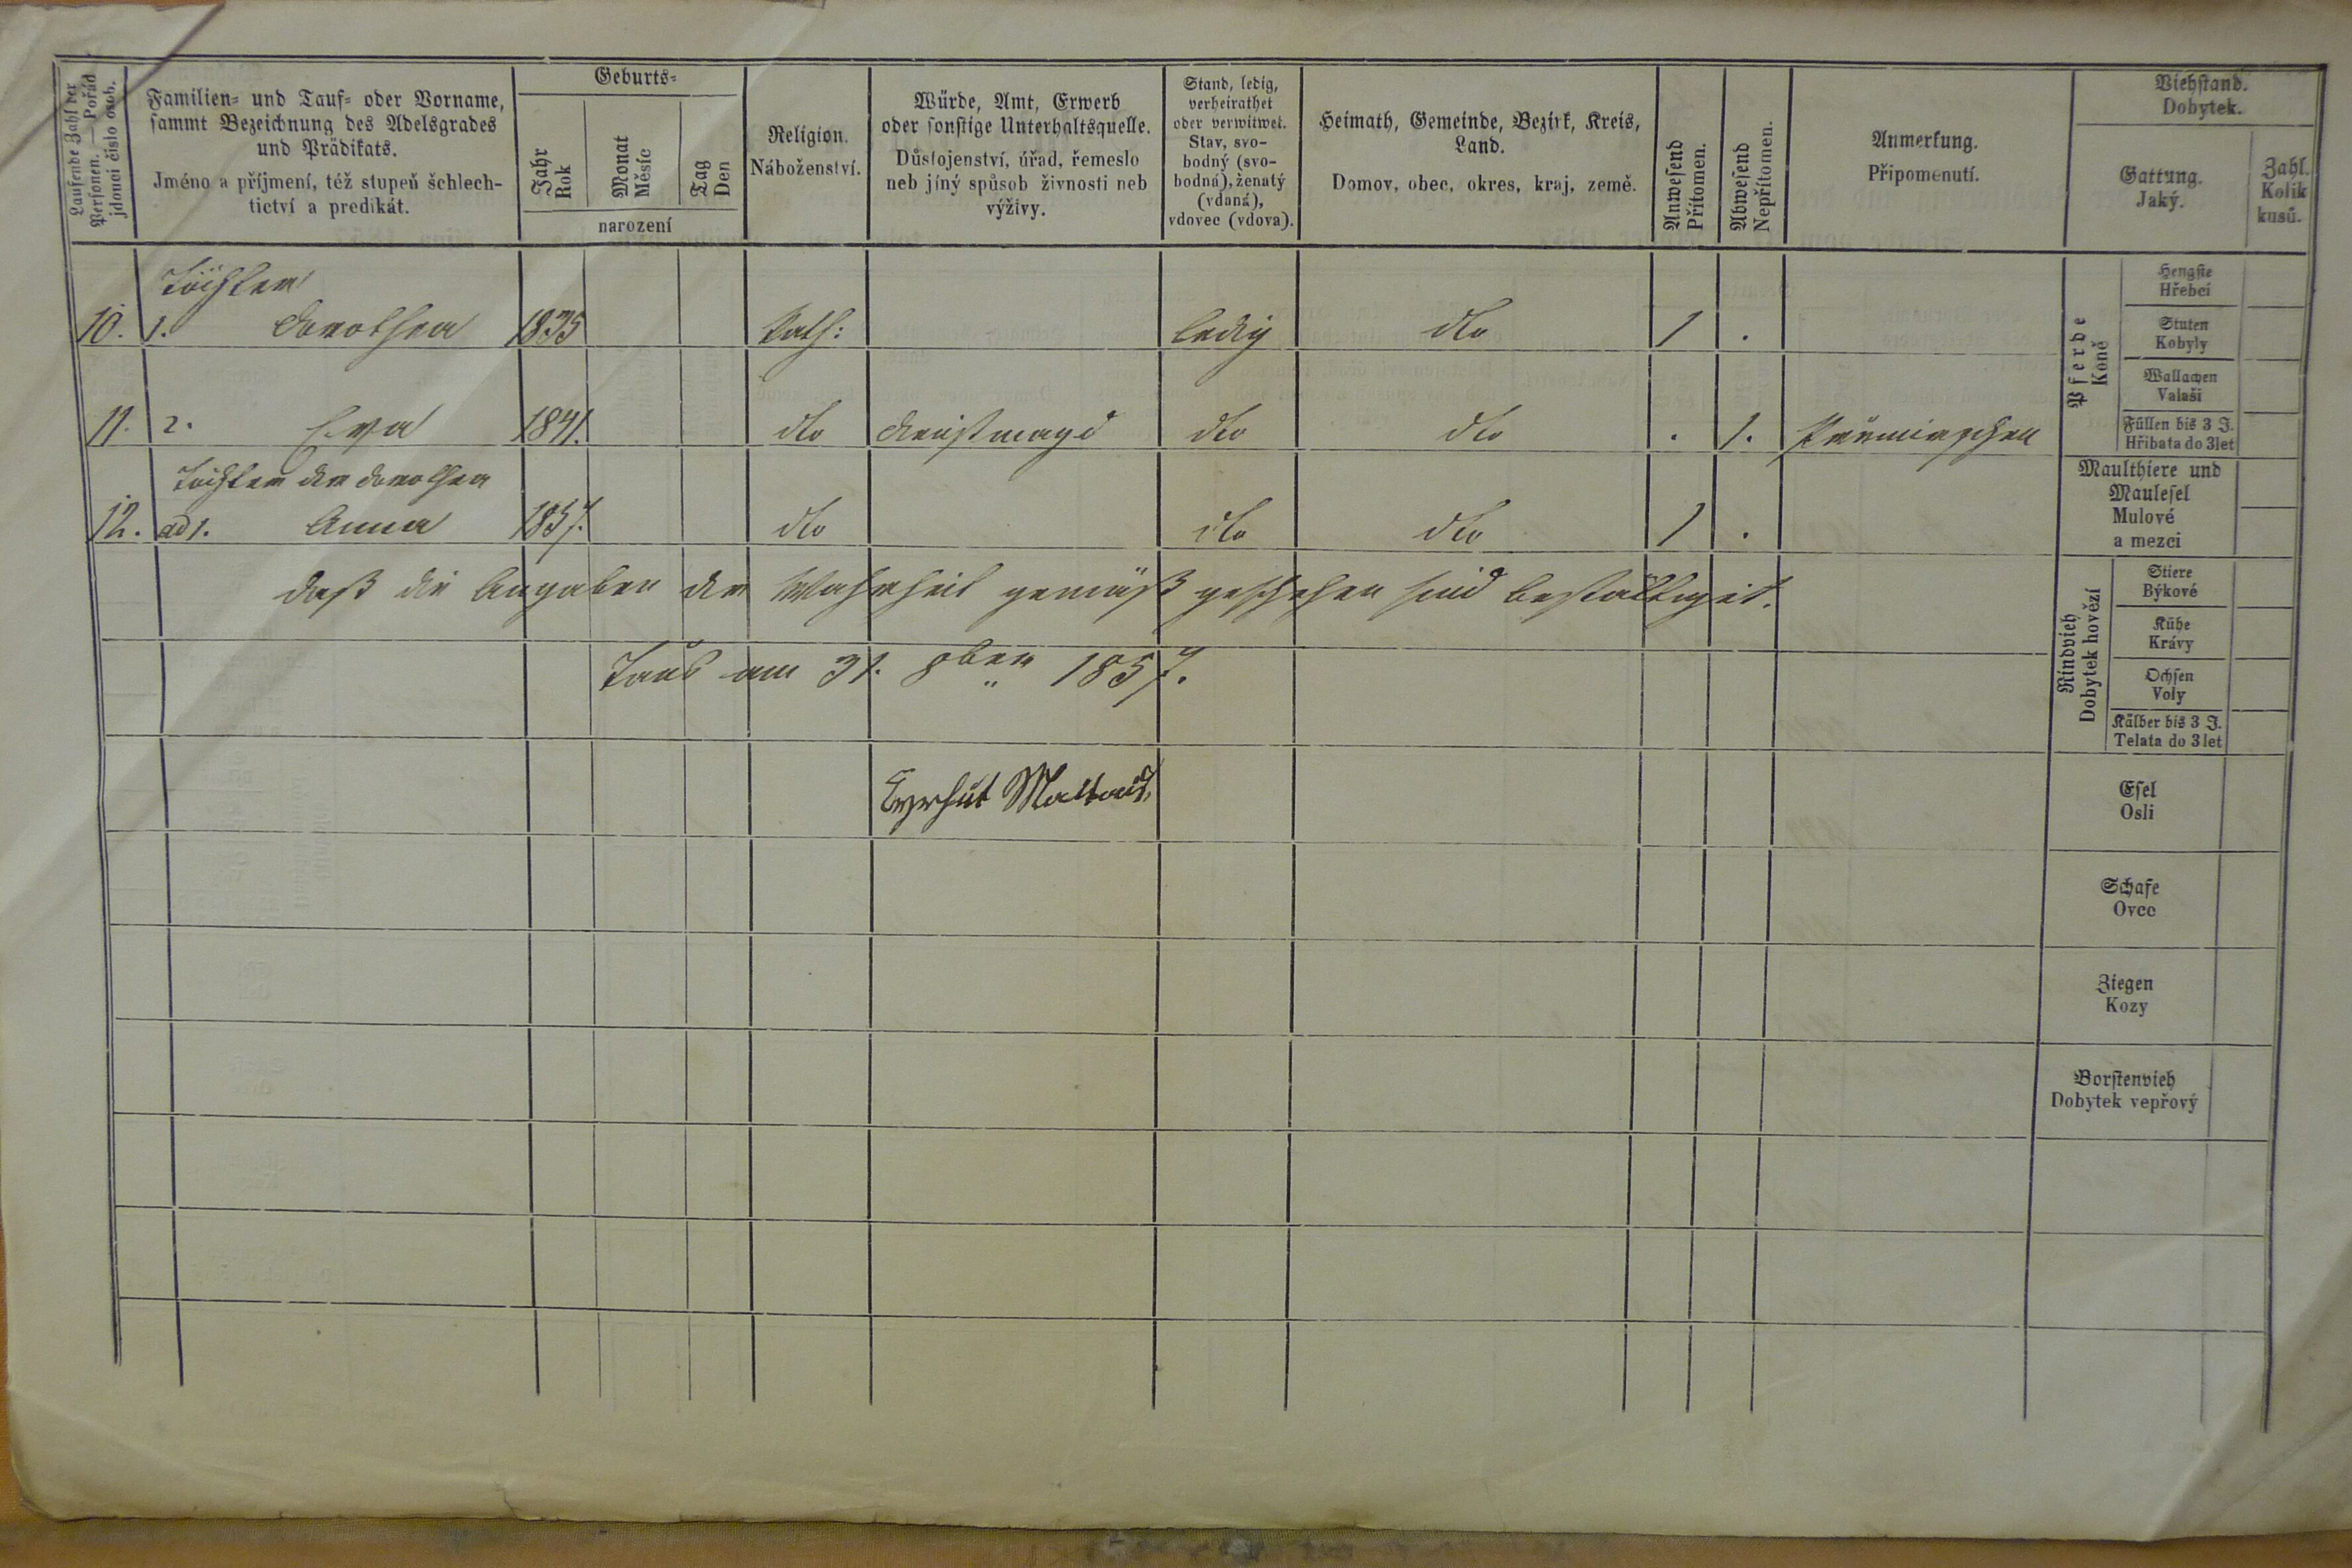 Laufende Zahl der
Personen. — Pořád
jdoucí číslo osob.
Familien- und Tauf- oder Vorname,
sammt Bezeichnung des Adelsgrades
und Prädikats.
Jméno a příjmení, též stupeň šchlech-
tictví a predikát.
Geburts-
Jahr
Rok
Monat
Měsíc
Tag
Den
narození
Religion.
Náboženství.
Würde, Amt, Erwerb
oder sonstige Unterhaltsquelle.
Důstojenství, úřad, řemeslo
neb jíný spůsob živnosti neb
výživy.
Stand, ledig,
verheirathet
oder verwitwet.
Stav, svo-
bodný (svo-
bodná), ženatý
(vdaná),
vdovec (vdova).
Heimath, Gemeinde, Bezirk, Kreis,
Land.
Domov, obec, okres, kraj, země.
Anwesend
Přítomen.
Abwesend
Nepřítomen.
Anmerkung.
Připomenutí.
Viehstand.
Dobytek.
Gattung.
Jaký.
Zahl.
Kolik
kusů.
Töchter
10. 1. Dorothea 1835 Kath: ledig dto 1 .
11. 2. Eva 1841. dto Dienstmagd dto dto . 1.
Tochter der Dorothea
12. ad 1. Anna 1857. dto dto dto 1 .
Daß die Angaben der Wahrheit gemäß geschehen sind bestättiget.
Taus am 31. 8ber 1857.
Mataus
Pferde
Koně
Hengste
Hřebci
Stuten
Kobyly
Wallachen
Valaši
Füllen bis 3 J.
Hřibata do 3 let
Maulthiere und
Maulesel
Mulové
a mezci
Rindvieh
Dobytek hovězí
Stiere
Býkové
Kühe
Krávy
Ochsen
Voly
Kälber bis 3 J.
Telata do 3 let
Esel
Osli
Schafe
Ovce
Ziegen
Kozy
Borstenvieh
Dobytek vepřový